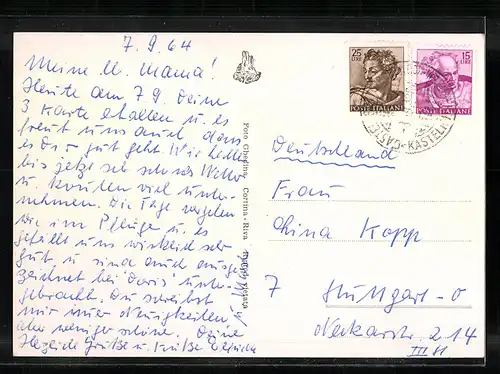 7.9.64
Meine lb. Mama!
Heute am 7.9. Deine
3 Karte erhalten u. es
freut uns auch dass
es Dir gut geht. Wir hatten
bis jetzt sehr schönes Wetter
u. konnten viel unter-
nehmen. Die Tage vergehen
wie im Fluge u. es
gefällt uns wirklich sehr
gut u. sind auch ausge-
zeichnet bei "Doris" unter-
gebracht. Du schreibst
mir nur Neuigkeiten
aber weniger schöne. Deine
Herzlich Grüße u. Küsse
Foto Ghedina - Cortina - Riva
25
LIRE
POSTE ITALIANE
15
LIRE
POSTE ITALIANE
Deutschland
Frau
China Kopp
7 Stuttgart-O
Neckarstr. 214
III St